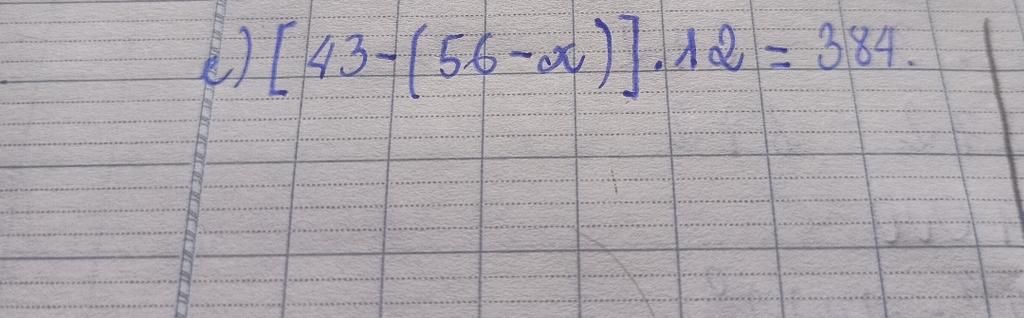 c) [43-(56-x)].12 = 384.